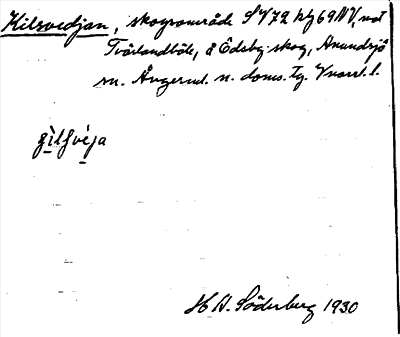 Kilsvedjan, skogsområde SV72 hg69NV, vid
Tvärlandböle, å Edsby skog, Anundsjö
sn. Ångerml. n. doms. Tg. Vnorrl. l.
gìlfvèja
H A. Söderberg 1930